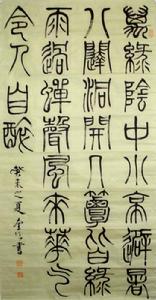 萬綠陰中小亭避暑
八闥洞開几簟皆綠
雨過蟬聲風來華气
令人自醉
癸未之夏